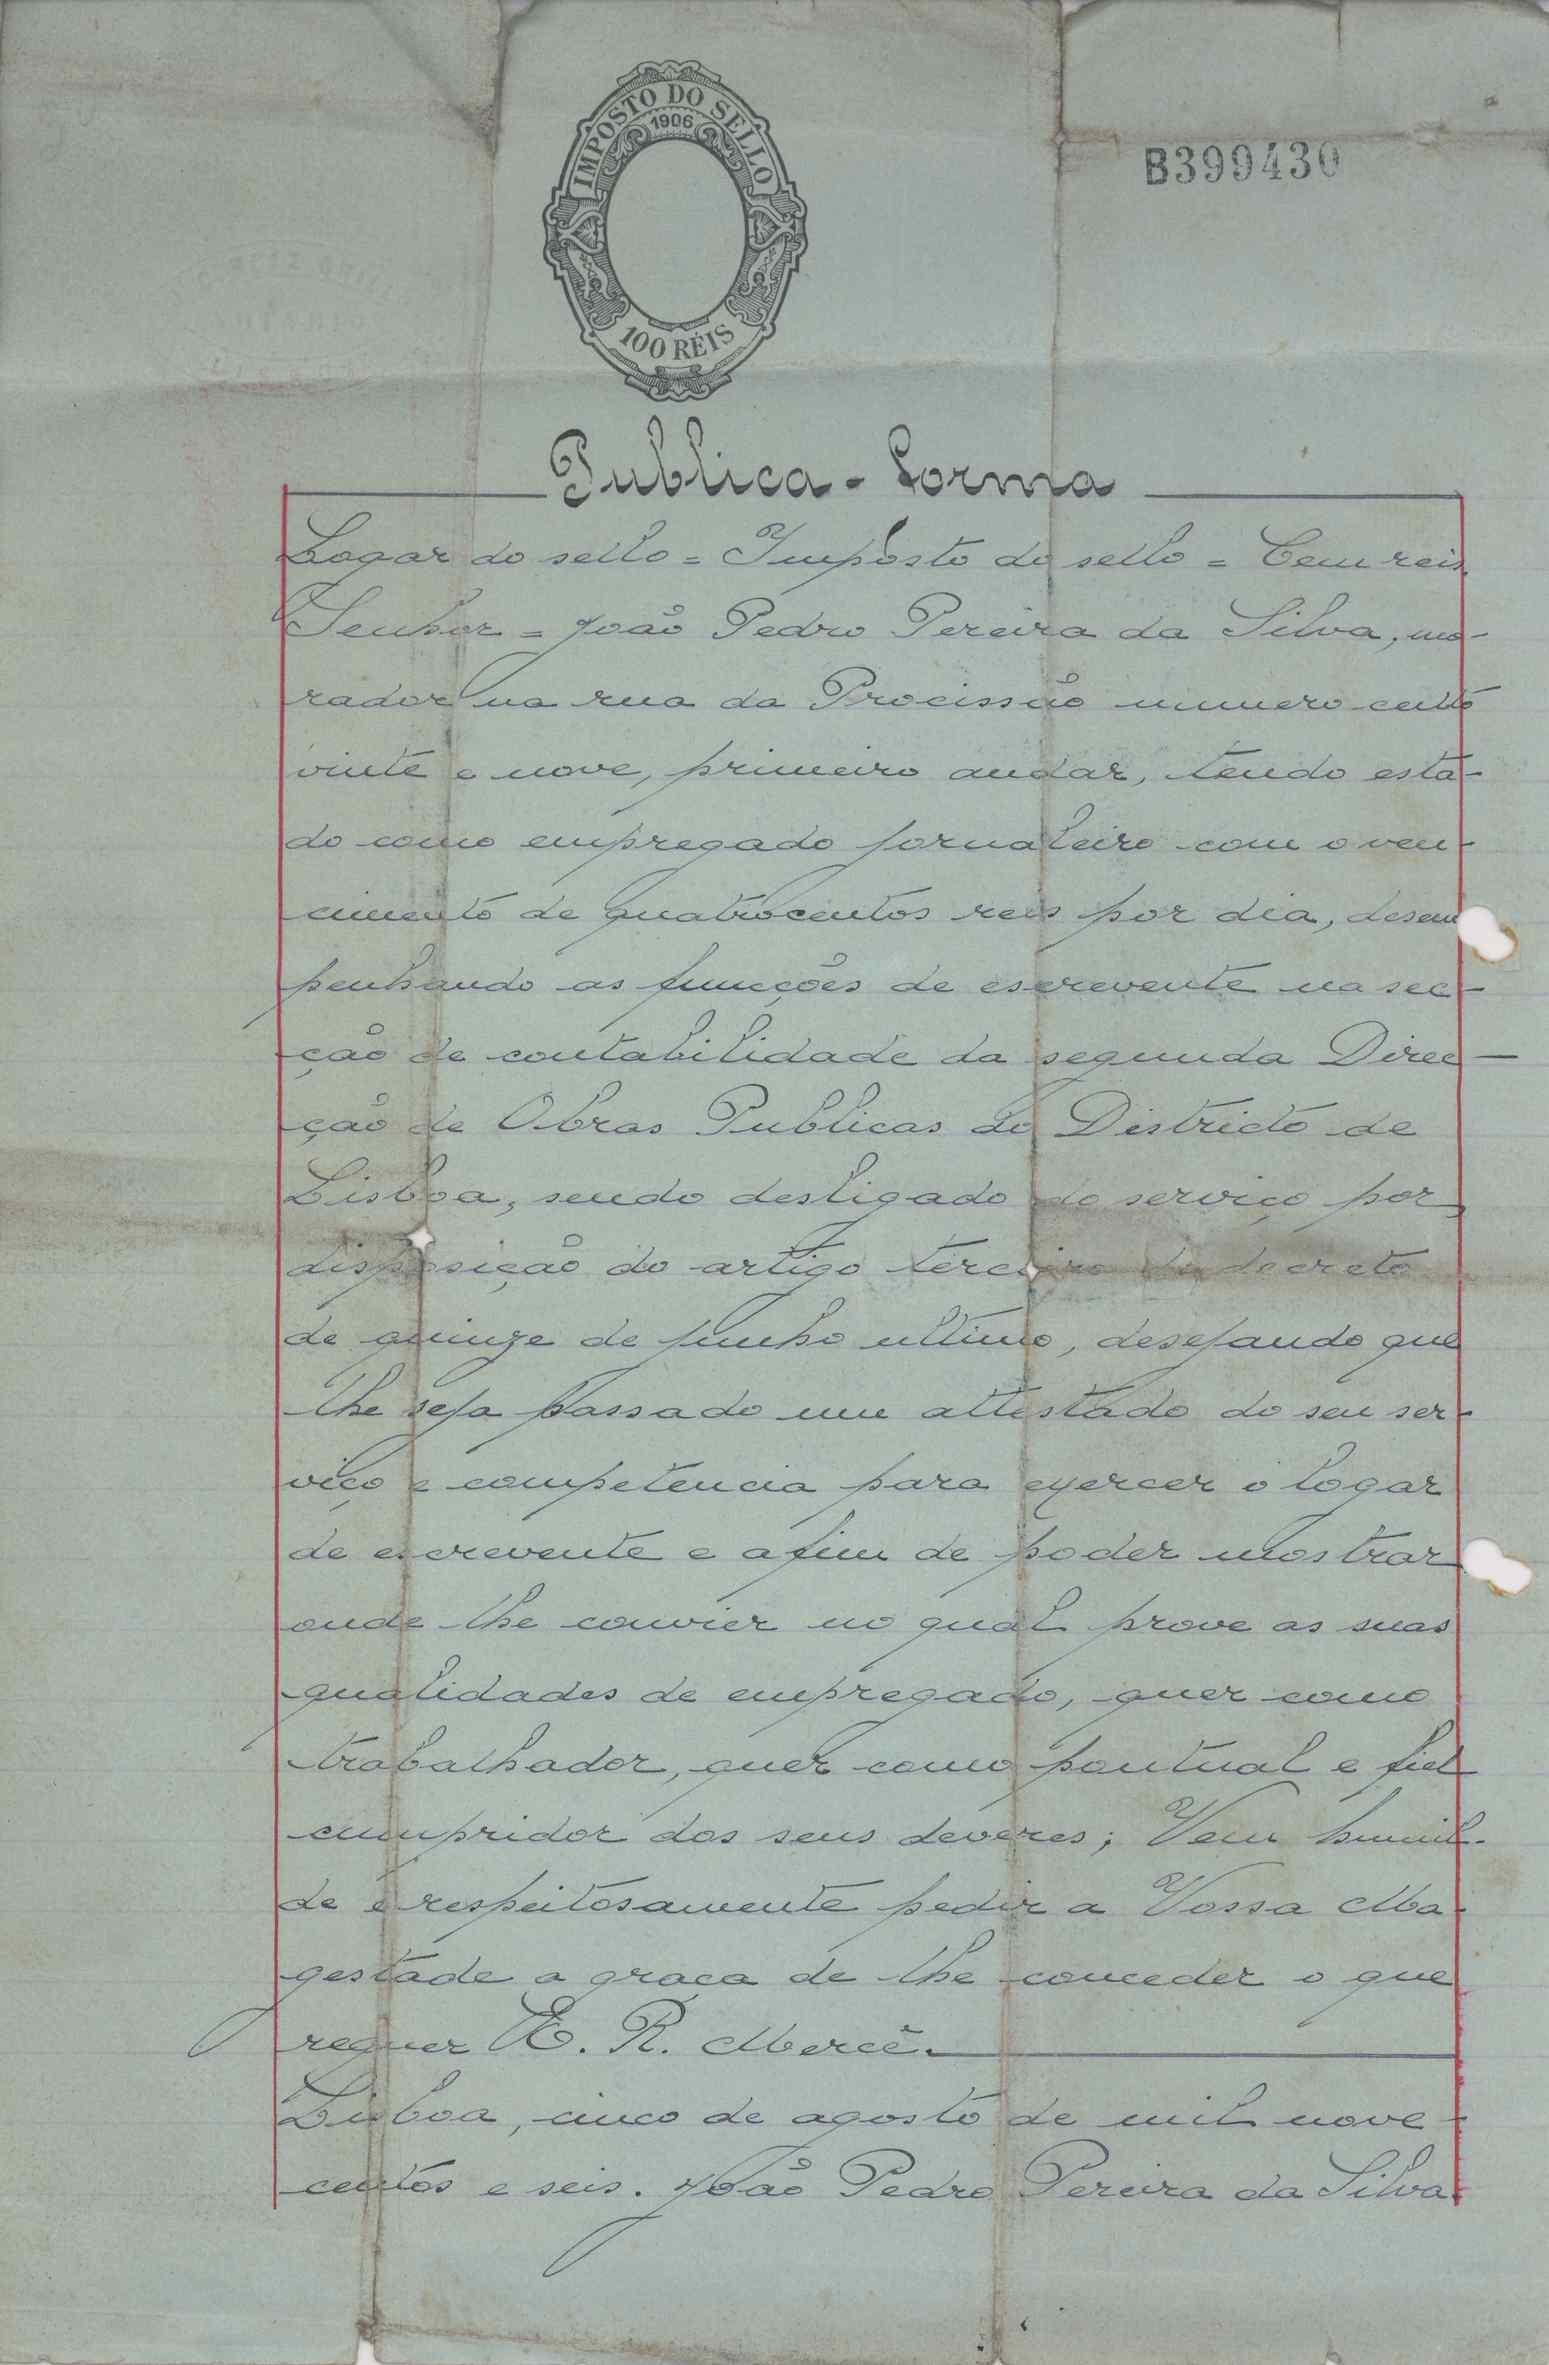 IMPOSTO DO SELLO
1906
100 RÉIS
B399430
Publica-Forma
Logar do sello = Imposto do sello = Cem reis
Senhor = João Pedro Pereira da Silva, mo-
rador na rua da Procissão numero cento
vinte e nove, primeiro andar, tendo esta-
do como empregado jornaleiro com o ven-
cimento de quatrocentos reis por dia, desem
penhando as funcções de escrevente na sec-
ção de contabilidade da segunda Direc-
ção de Obras Publicas do Districto de
Lisboa, sendo desligado do serviço por
disposição do artigo terceiro do decreto
de quinze de junho ultimo, desejando que
lhe seja passado um attestado do seu ser-
viço e competencia para exercer o logar
de escrevente e afim de poder mostrar
onde lhe convier no qual prove as suas
qualidades de empregado, quer como
trabalhador, quer como pontual e fiel
cumpridor dos seus deveres; Vem humil-
de e respeitosamente pedir a Vossa Ma-
gestade a graca de lhe conceder o que
requer E. R. Mercê.
Lisboa, cinco de agosto de mil nove-
centos e seis. João Pedro Pereira da Silva